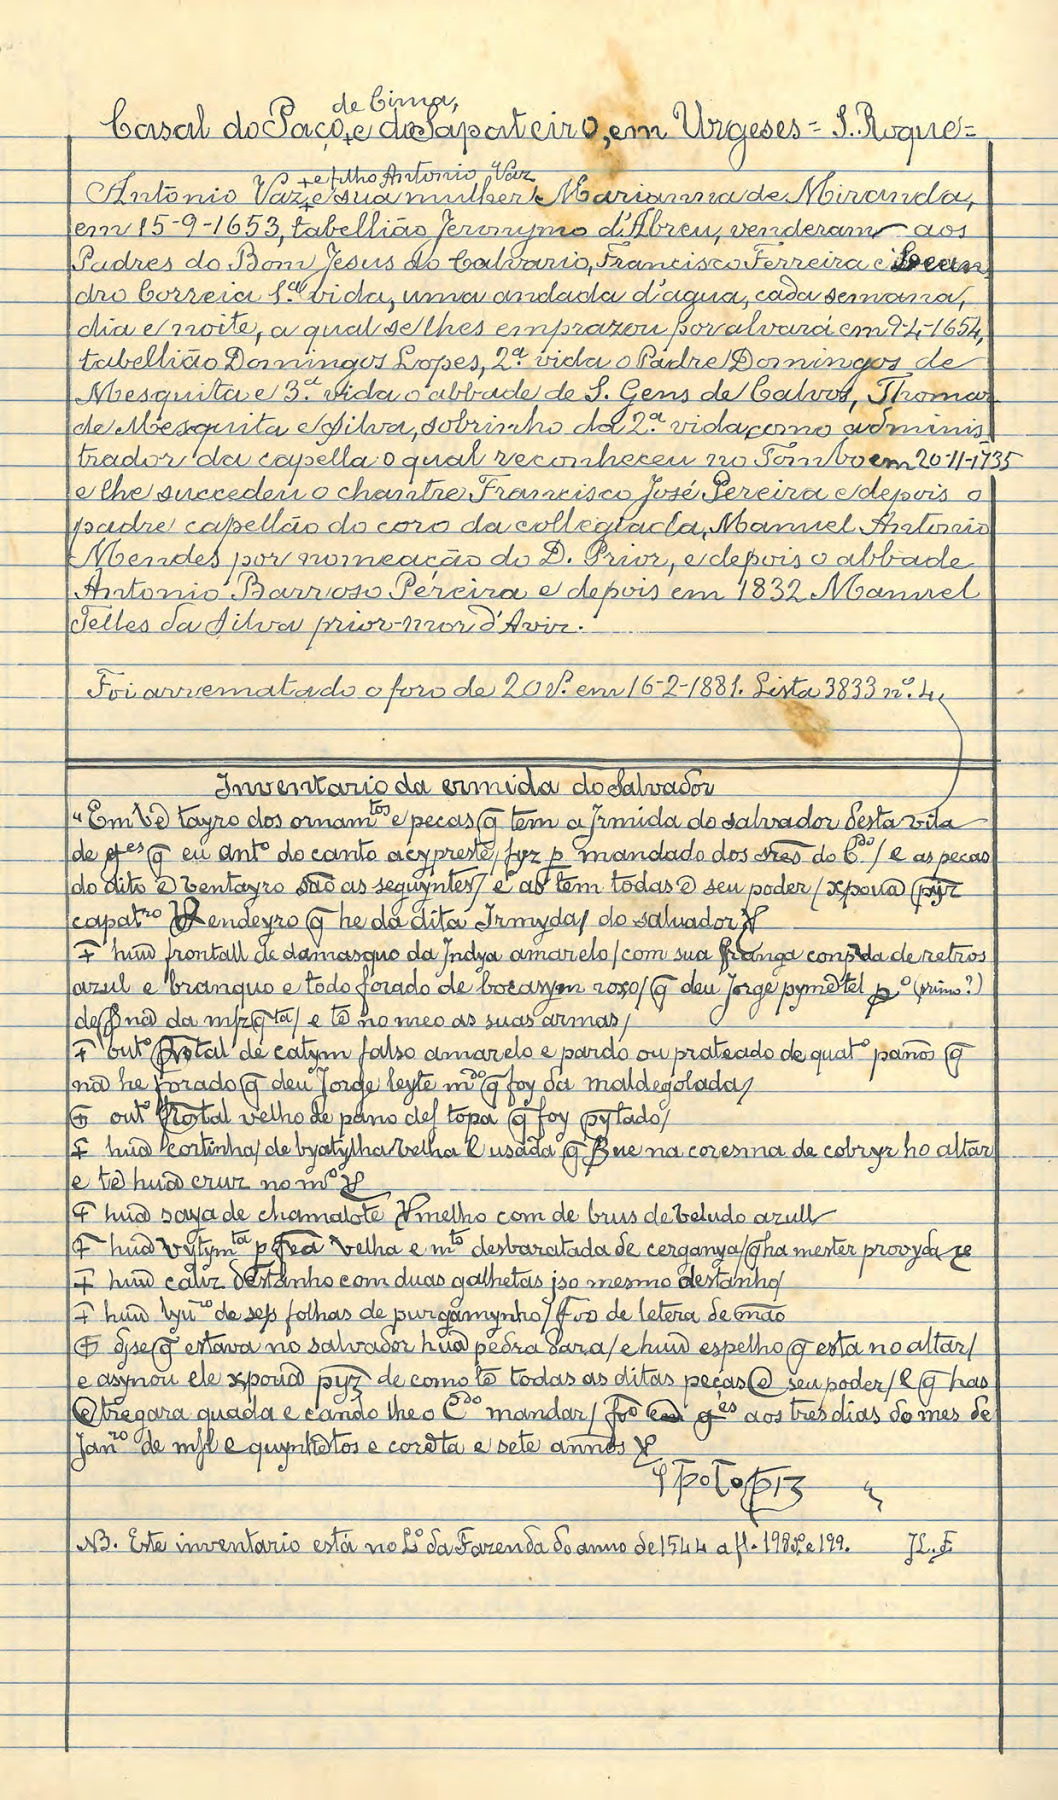 de Cima,
Casal do Paço, e do Sapateiro, em Urgeses = S. Roque =
e filho Antonio Vaz
Antonio Vaz, e sua mulher Marianna de Miranda,
em 15-9-1653, tabellião Jeronymo d'Abreu, venderam aos
Padres do Bom Jesus do Calvario, Francisco Ferreira e Lean
dro Correia 1.ª vida, uma andada d'agua, cada semana,
dia e noite, a qual se lhes emprazou por alvará em 9-4-1654,
tabellião Domingos Lopes, 2.ª vida o Padre Domingos de
Mesquita e 3.ª vida o abbade de S. Gens de Calvos, Thomaz
de Mesquita e Silva, sobrinho da 2.ª vida, como adminis
trador da capella o qual reconheceu no Tombo em 20-11-1735
e lhe succedeu o chantre Francisco José Pereira e depois o
padre capellão do coro da collegiada, Manuel Antonio
Mendes por nomeação do D. Prior, e depois o abbade
Antonio Barroso Pereira e depois em 1832 Manuel
Telles da Silva prior-mor d'Aviz.
Foi arrematado o foro de 20 rs. em 16-2-1881. Lista 3833 nº. 4
Inventario da ermida do Salvador
"Em vẽ tayro dos ornam.tos e peças q̃ tem a Irmida do salvador desta vila
de g.es q̃ eu ant.º do canto acypreste, fyz p mandado dos sres do C.do / e as peças
do dito ẽ ventayro são as seguyntes / e as tem todas ẽ seu poder / xpovã pyz
capat.ro Rendeyro q̃ he da dita Irmyda / do salvador
hũu frontall de damasquo da Indya amarelo / com sua franga de retros
azul e branquo e todo forado de bocasym roxo / q̃ deu Jorge pymẽtel pº (primo?)
da / e tẽ no meo as suas armas /
outº frõtal de catym falso amarelo e pardo ou prateado de quatº panos q̃
nã he forado q̃ deu Jorge leyte m.do q̃ foy da maldegolada /
outº frõtal velho de pano de topa q̃ foy pytado /
hũa cortinha / de byatylha velha e usada q̃ na coresma de cobryr ho altar
e tẽ hũa cruz no mº
hũa saya de chamalote Vmelho com de brus de veludo azull
hũa vytym.ta velha e m.to desbaratada de cerganya / q̃ ha mester provyda
hũu caliz destanho com duas galhetas iso mesmo destanho /
hũu lyu.ro de seis folhas de purgamynho / de letera de mão
dise q̃ estava no salvador hũa pedra dara / e hũu espelho q̃ esta no altar /
e asynou ele xpovã pyz de como tẽ todas as ditas peças ẽ seu poder / e q̃ has
ẽtregara quada e cando lhe o C.do mandar / g.es aos tres dias do mes de
Jan.ro de mjl e quynhẽtos e corẽta e sete annos
NB. Este inventario está no L.º da Fazenda do anno de 1544 a fl. 198 vº e 199. JL. F